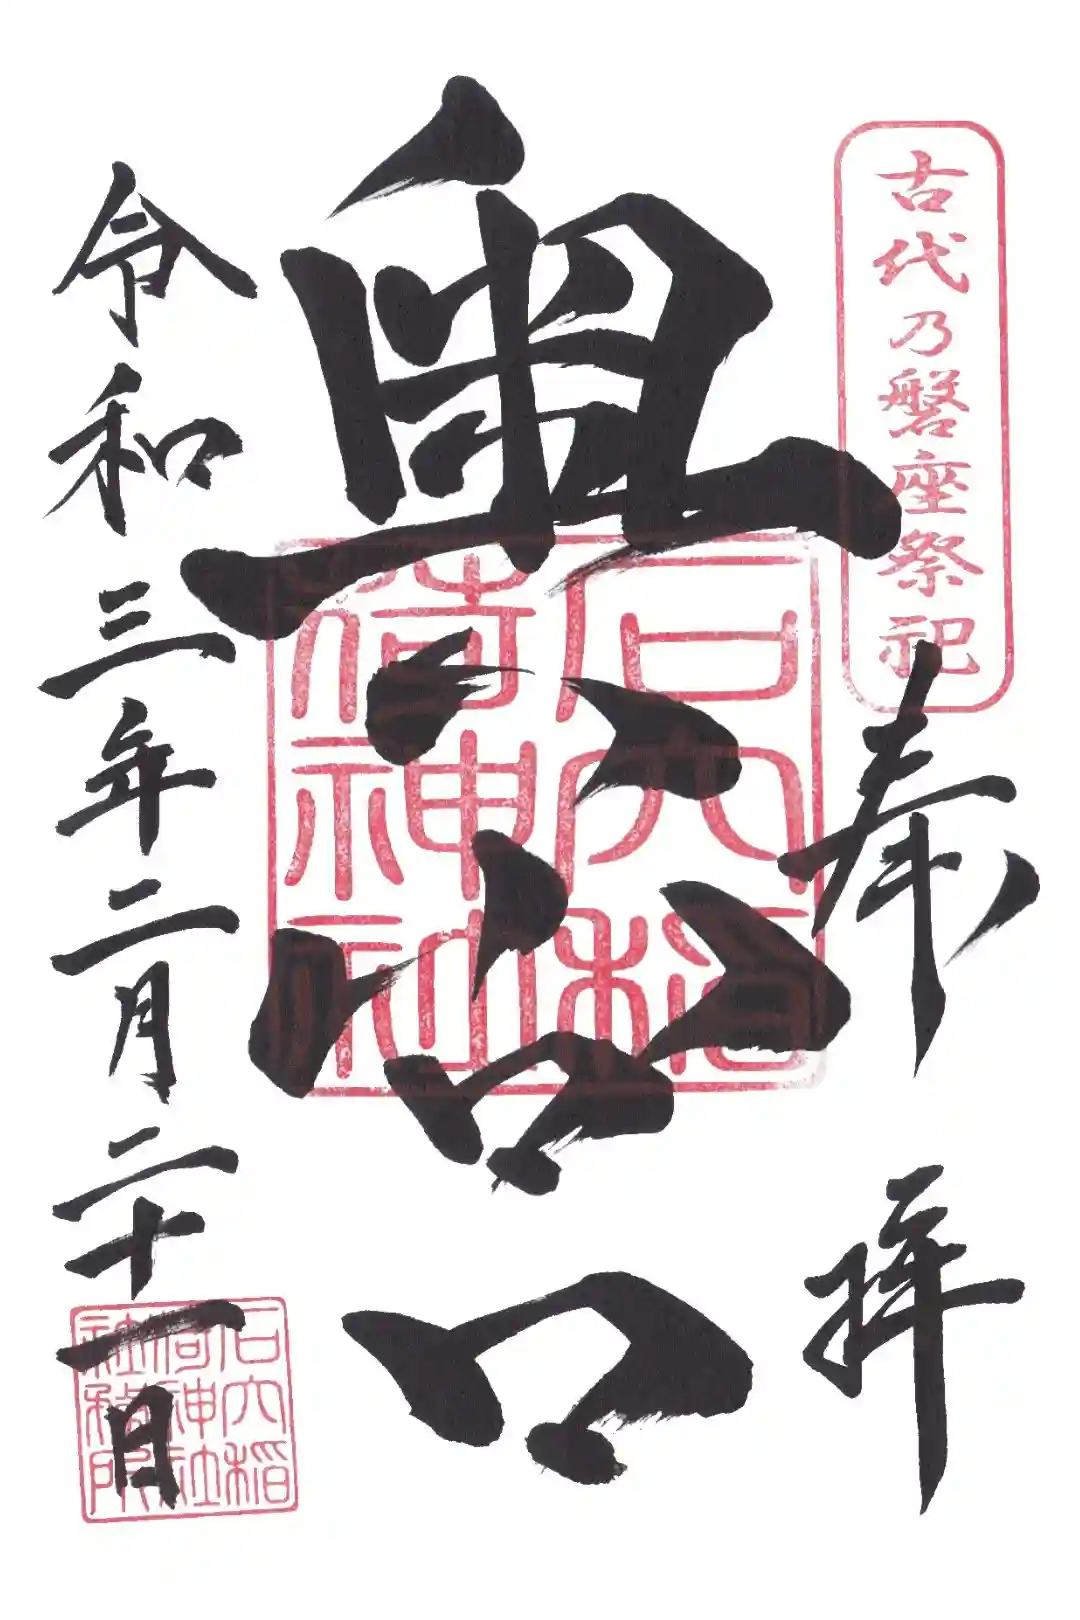 古代乃磐座祭祀
奉拝
奥宮
石穴稲
荷神社
令和三年二月二十一日
石穴稲
荷神社
社務所